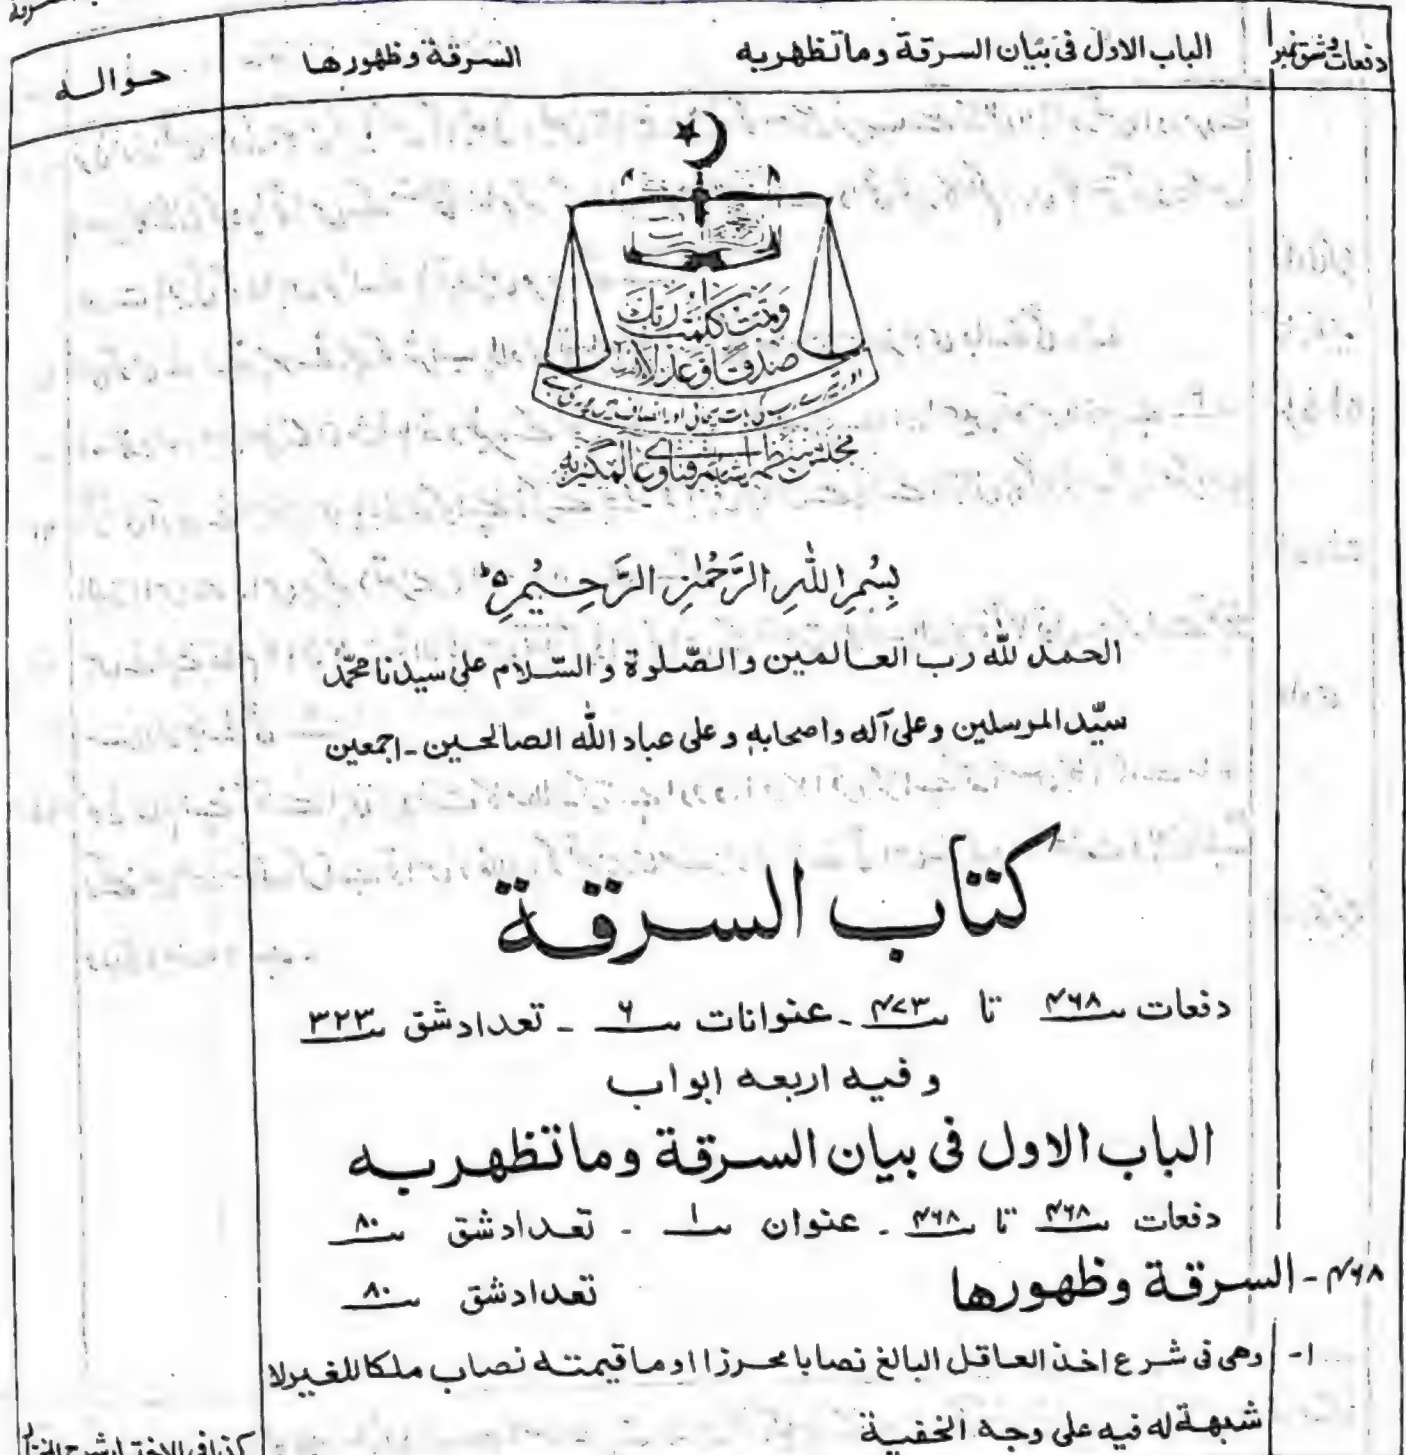 دفعات وشق نمبر
الباب الاول فی بیان السرقة وما تظهر به
السرقة وظهورها
حواله
وتمت كلمت ربك
صدقا وعدلا
اور تیرے رب کی بات سچائی اور انصاف میں پوری ہے
بِسْمِ اللهِ الرَّحْمٰنِ الرَّحِیْمِ
الحمد لله رب العالمین والصّلوة والسّلام علی سیدنا محمّد
سیّد المرسلین وعلی آله واصحابه وعلی عباد الله الصالحین ـ اجمعین
كتاب السرقة
دفعات ۴۶۸ تا ۴۷۳ ـ عنوانات ۶ ـ تعداد شق ۳۲۳
وفیه اربعه ابواب
الباب الاول فی بیان السرقة وما تظهر به
دفعات ۴۶۸ تا ۴۶۸ ـ عنوان ۱ ـ تعداد شق ۸۰
۴۶۸ ـ السرقة وظهورها
تعداد شق ۸۰
۱ـ وهی فی شرع اخذ العاقل البالغ نصابا محرزا او ما قیمته نصاب ملكا للغیر لا
شبهة له فیه علی وجه الخفیة
كذا فی الاختیار شرح المختار